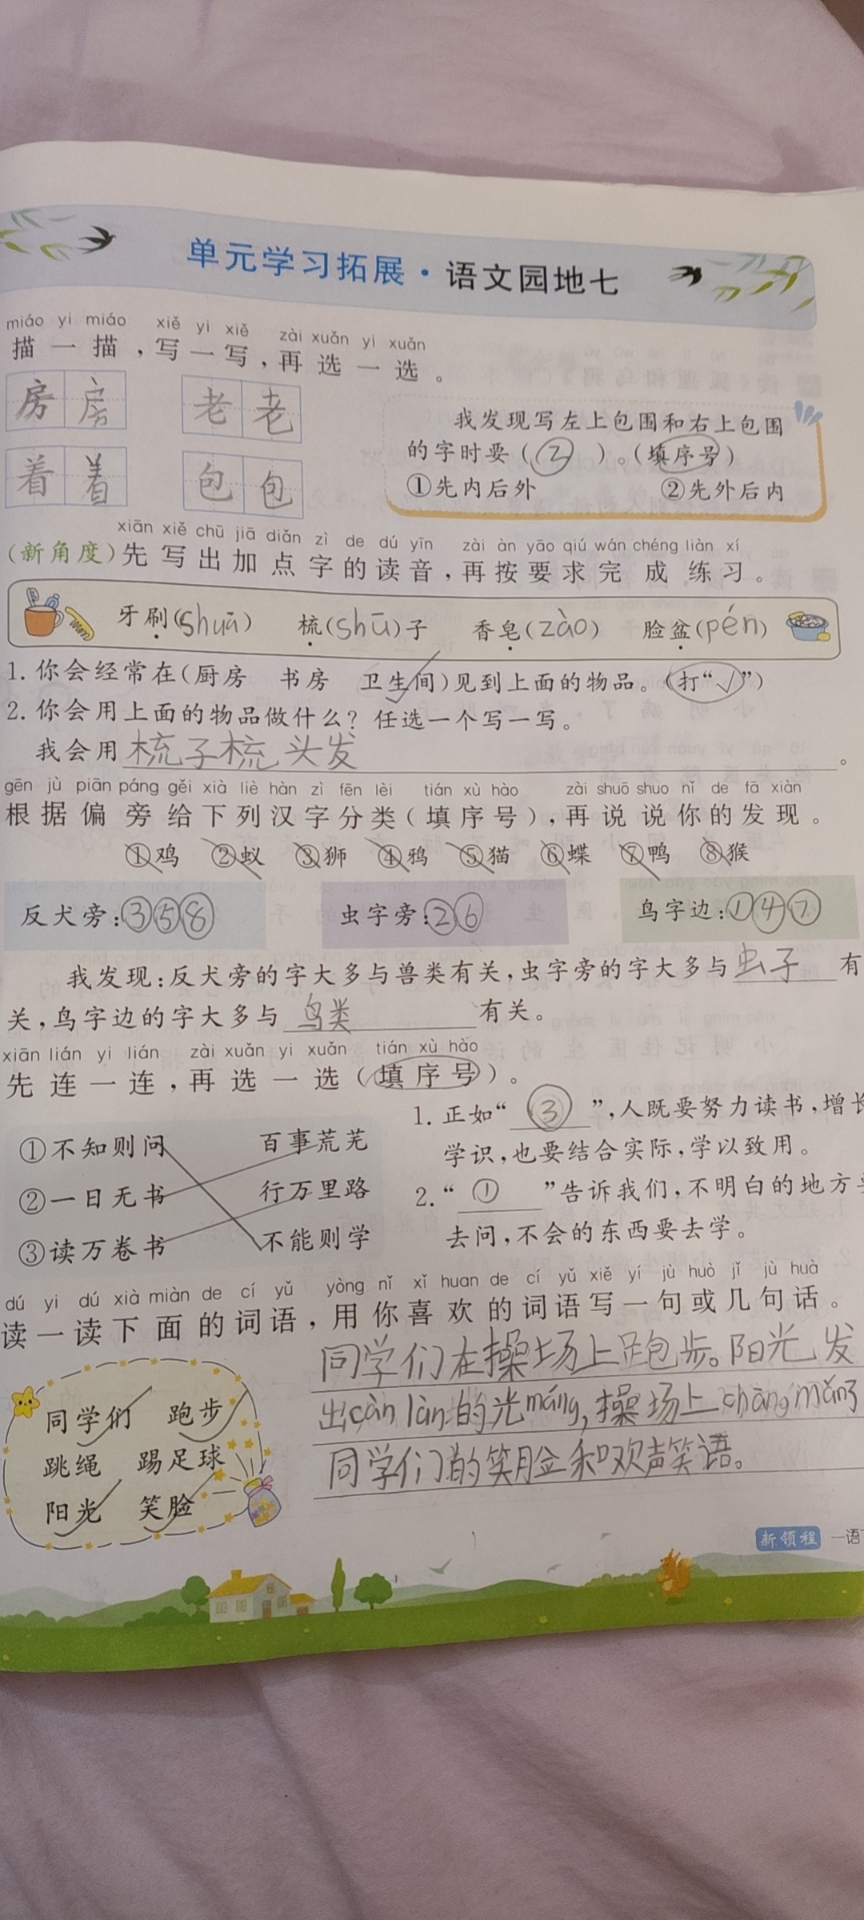 单元学习拓展·语文园地七
miáo yi miáo xiě yi xiě zài xuǎn yi xuǎn
描一描,写一写,再选一选。
房房 老老
着着 包包
我发现写左上包围和右上包围
的字时要(②)。(填序号)
①先内后外 ②先外后内
xiān xiě chū jiā diǎn zì de dú yīn zài àn yāo qiú wán chéng liàn xí
(新角度)先写出加点字的读音,再按要求完成练习。
牙刷(shuā) 梳(shū)子 香皂(zào) 脸盆(pén)
1.你会经常在(厨房 书房 卫生间)见到上面的物品。(打“√”)
2.你会用上面的物品做什么?任选一个写一写。
我会用梳子梳头发。
gēn jù piān páng gěi xià liè hàn zì fēn lèi tián xù hào zài shuō shuo nǐ de fā xiàn
根据偏旁给下列汉字分类(填序号),再说说你的发现。
①鸡 ②蚁 ③狮 ④鸦 ⑤猫 ⑥蝶 ⑦鸭 ⑧猴
反犬旁:③⑤⑧ 虫字旁:②⑥ 鸟字边:①④⑦
我发现:反犬旁的字大多与兽类有关,虫字旁的字大多与虫子有
关,鸟字边的字大多与鸟类有关。
xiān lián yi lián zài xuǎn yi xuǎn tián xù hào
先连一连,再选一选(填序号)。
①不知则问 百事荒芜
②一日无书 行万里路
③读万卷书 不能则学
1.正如“③”,人既要努力读书,增长
学识,也要结合实际,学以致用。
2.“①”告诉我们,不明白的地方
去问,不会的东西要去学。
dú yi dú xià miàn de cí yǔ yòng nǐ xǐ huan de cí yǔ xiě yí jù huò jǐ jù huà
读一读下面的词语,用你喜欢的词语写一句或几句话。
同学们 跑步
跳绳 踢足球
阳光 笑脸
同学们在操场上跑步。阳光发
出càn làn的光máng,操场上chōng mǎn
同学们的笑脸和欢声笑语。
新领程 一语